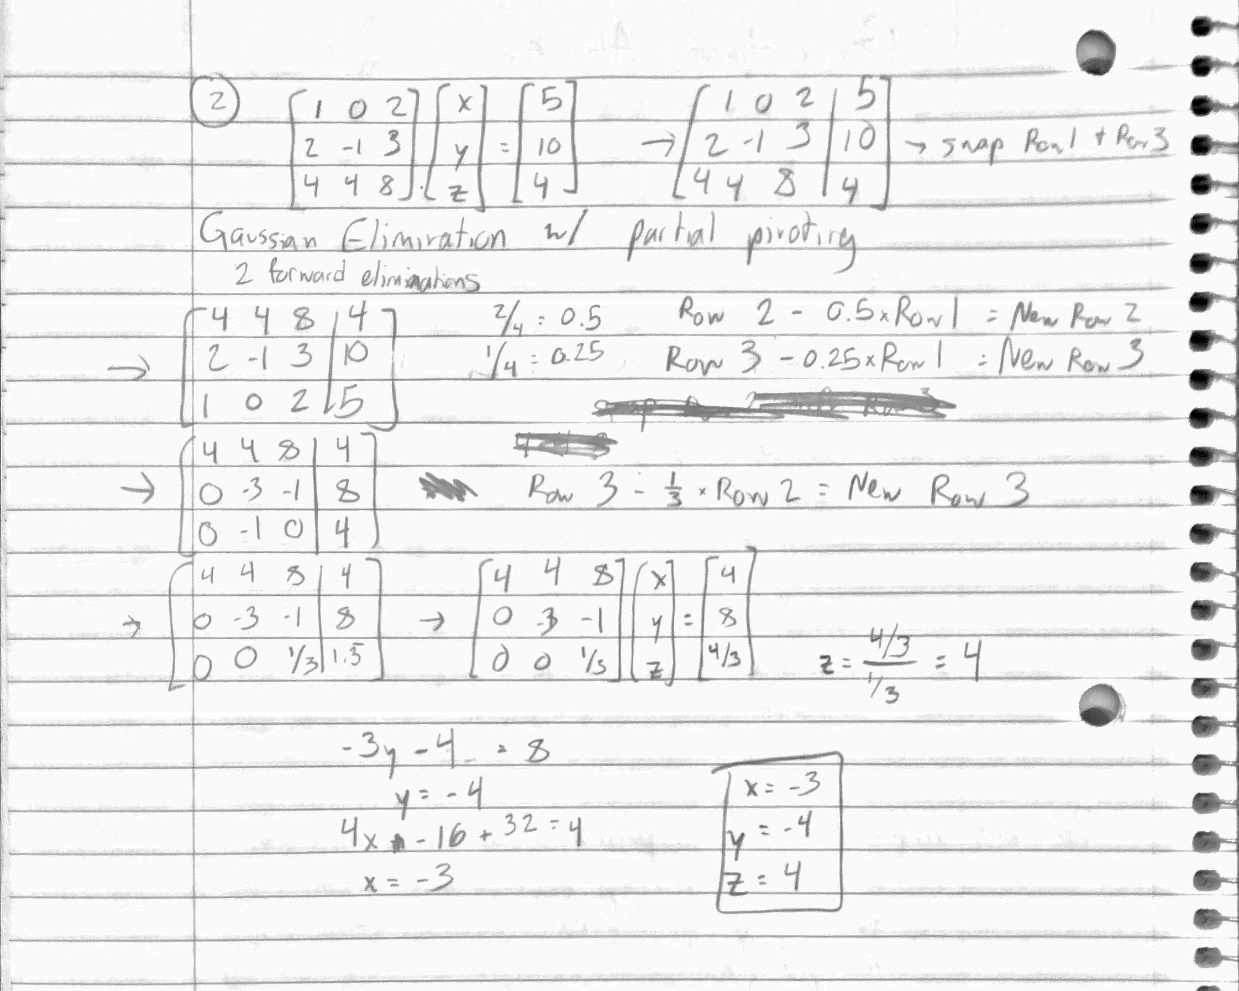 2
[1 0 2; 2 -1 3; 4 4 8] · [x; y; z] = [5; 10; 4] → [1 0 2 | 5; 2 -1 3 | 10; 4 4 8 | 4] → swap Row 1 + Row 3
Gaussian Elimination w/ partial pivoting
2 forward eliminations
→ [4 4 8 | 4; 2 -1 3 | 10; 1 0 2 | 5]
2/4 = 0.5 Row 2 - 0.5 × Row 1 = New Row 2
1/4 = 0.25 Row 3 - 0.25 × Row 1 = New Row 3
→ [4 4 8 | 4; 0 -3 -1 | 8; 0 -1 0 | 4] Row 3 - 1/3 × Row 2 = New Row 3
→ [4 4 8 | 4; 0 -3 -1 | 8; 0 0 1/3 | 1.3] → [4 4 8; 0 -3 -1; 0 0 1/3] [x; y; z] = [4; 8; 4/3] z = 4/3 / 1/3 = 4
-3y - 4 = 8
y = -4
4x - 16 + 32 = 4
x = -3
x = -3
y = -4
z = 4